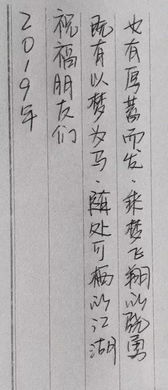 也有厚葛而发.乘梦飞翔以骁勇
既有以梦为马.随处可栖以江湖
祝福朋友们
2019年